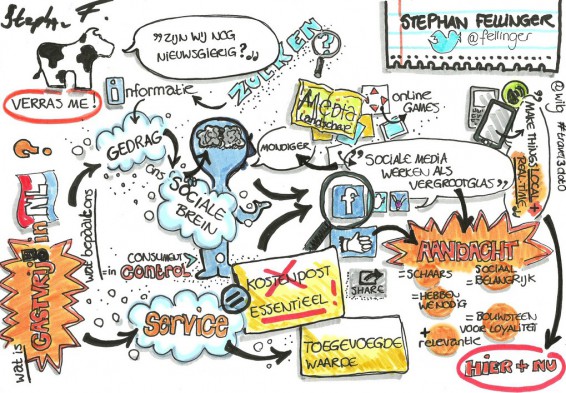 Steph. F.
"ZIJN WIJ NOG
NIEUWSGIERIG?"
VERRAS ME!
i
informatie
ZOEKEN
?
STEPHAN FELLINGER
@fellinger
Media
Landschap
online
GAMES
@wilg
#travel3dodo
"MAKE THINGS LOCAL +
REAL TIME"
GEDRAG
ons
SOCIALE
BREIN
MONDIGER
"SOCIALE MEDIA
WERKEN ALS
VERGROOTGLAS"
f
wat is
GASTVRIJ
in
NL
?
wat bepaalt ons
CONSUMENT
=in CONTROL
KOSTENPOST
ESSENTIEEL!
SHARE
AANDACHT
= SCHAARS
= HEBBEN
WE NODIG
+
relevantie
= SOCIAAL
BELANGRIJK
= BOUWSTEEN
VOOR LOYALITEIT
Service
TOEGEVOEGDE
WAARDE
HIER + NU